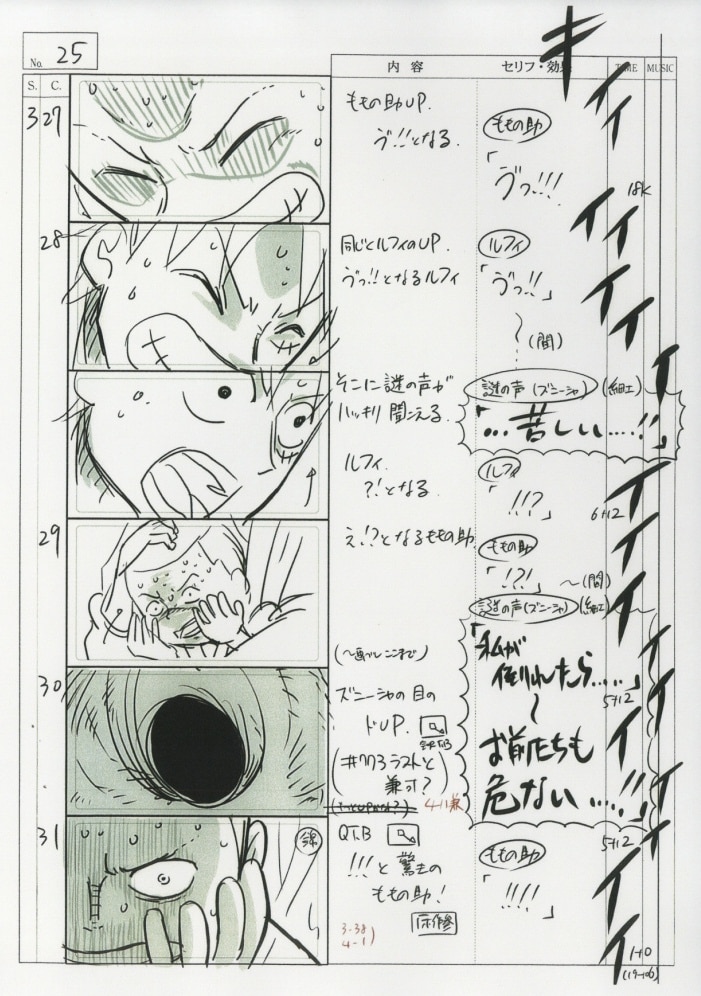 No. 25
S. C. 内容 セリフ・効果 TIME MUSIC
327
ももの助UP.
う゛!!となる.
ももの助
「う゛っ!!!
18K
28
同じくルフィのUP.
う゛っ!!となるルフィ
ルフィ
「う゛っ!!」
(間)
そこに謎の声が
ハッキリ聞こえる.
謎の声(ズニーシャ)
「…苦しい…‥!!」
ルフィ.
?!となる.
ルフィ
「!!?」
6+12
29
え!?となるももの助.
ももの助
「!?!」
〜(間)
謎の声(ズニーシャ)
「私が
倒れたら……
5+12
30
ズニーシャの目の
ドUP.
(#773ラストと
兼ヌ?)
4-11兼
お前たちも
危ない…‥!!」
5+12
31
QT.B
!!!と驚きの
ももの助!
ももの助
「!!!!」
3-38
4-1)
1+0